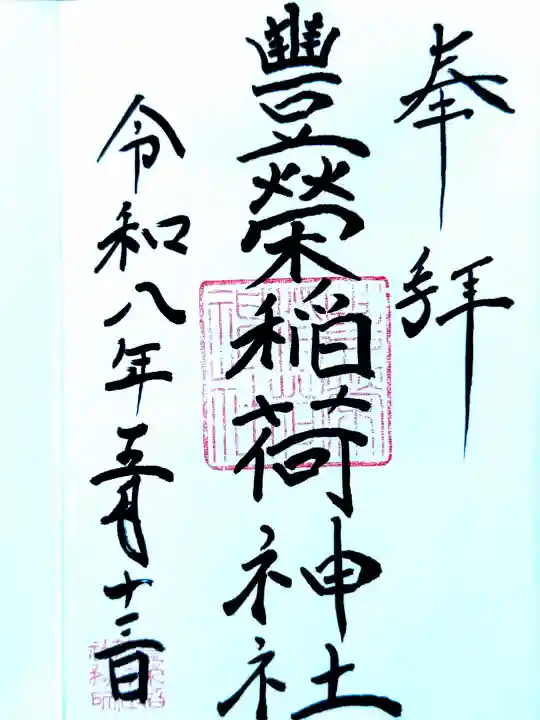 奉拝
豊榮稲荷神社
令和八年五月十三日